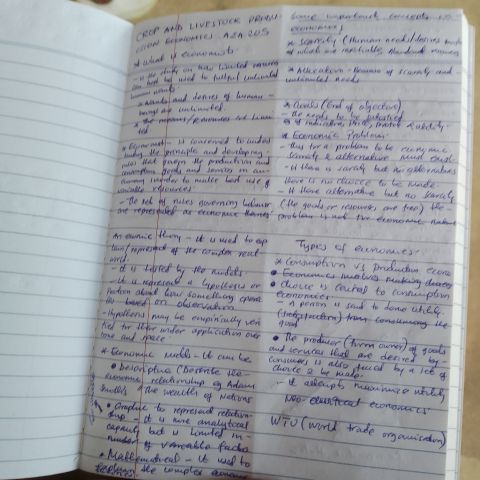 CROP AND LIVESTOCK PRODU-
CTION ECONOMICS AEA 205
* What is economist
- is the study on how limited
can best be used to fulfil unlimited
human wants
* Wants and desires of human
beings are unlimited.
* The means/resources are limi-
ted
* Economist - is concerned to under
standing the principle and developing
rules that govern the production and
consumption goods and services in an
economy in order to make best use of
available resources
- The set of rules governing behavior
are represented as economic theories
An economic theory - it is used to exp
lain/represent of the complex real
world.
- it is tested by the models
- it is represent a hypothesis or
notion about how something opera
tes based on observation
- Hypothesis may be empirically veri
fied for their wider application over
time and space.
* Economic models - it can be
• Descriptive (Describe the
economic relationship eg Adam
Smith's the wealth of Nations
• Graphic to represent relation-
ship - it is more analytical
capacity but is limited in-
number of variable factors
• Mathematical - it used to
the complex economic
Some important concepts in
economics
* Scarcity (Human need/desires
of what are
* Allocation - Because of scarcity and
unlimited needs
* Goals (End of objectives)
- the needs to be satisfied
eg of indicators, price, profit & utility
* Economic Problem
- thus for a problem to be economic
scarcity & alternative must exist
- if there is scarcity but no alternatives
there is no choice to be made.
- if there alternative but no scarcity
(the goals or resources are free) the
problem is not the economic nature
Types of economics
* Consumption vs production econo
• Economics involves making
• Choice is central to consumption
economics
- A person is said to derive utility
(satisfaction) from consuming the
good
• The producer (firm owner) of goods
and services that are desired by
consumers is also faced by a set of
choice 2 be made:
- it attempts maximize utility
neo-classical economics
WTO (World trade organisation)